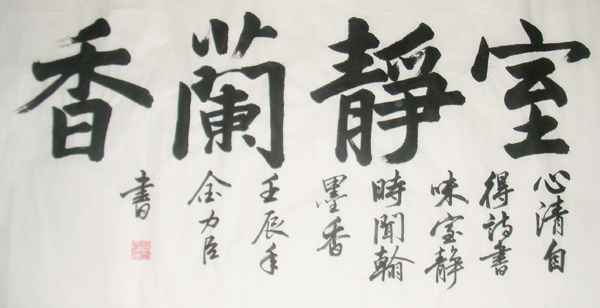 室靜蘭香
心清自
得詩書
味室靜
時聞翰
墨香
壬辰年
金力臣
書